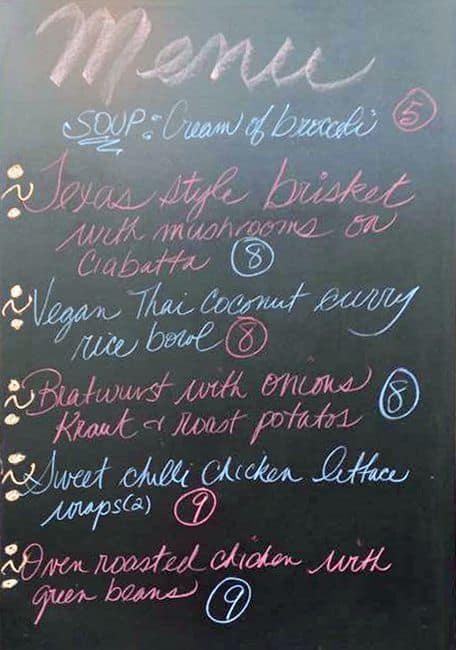 Menu
SOUP: Cream of broccoli 5
Texas style brisket
with mushrooms on
Ciabatta 8
Vegan Thai Coconut curry
rice bowl 8
Bratwurst with onions 8
Kraut & roast potatos
Sweet chilli chicken lettace
wraps (2) 9
Oven roasted chicken with
green beans 9